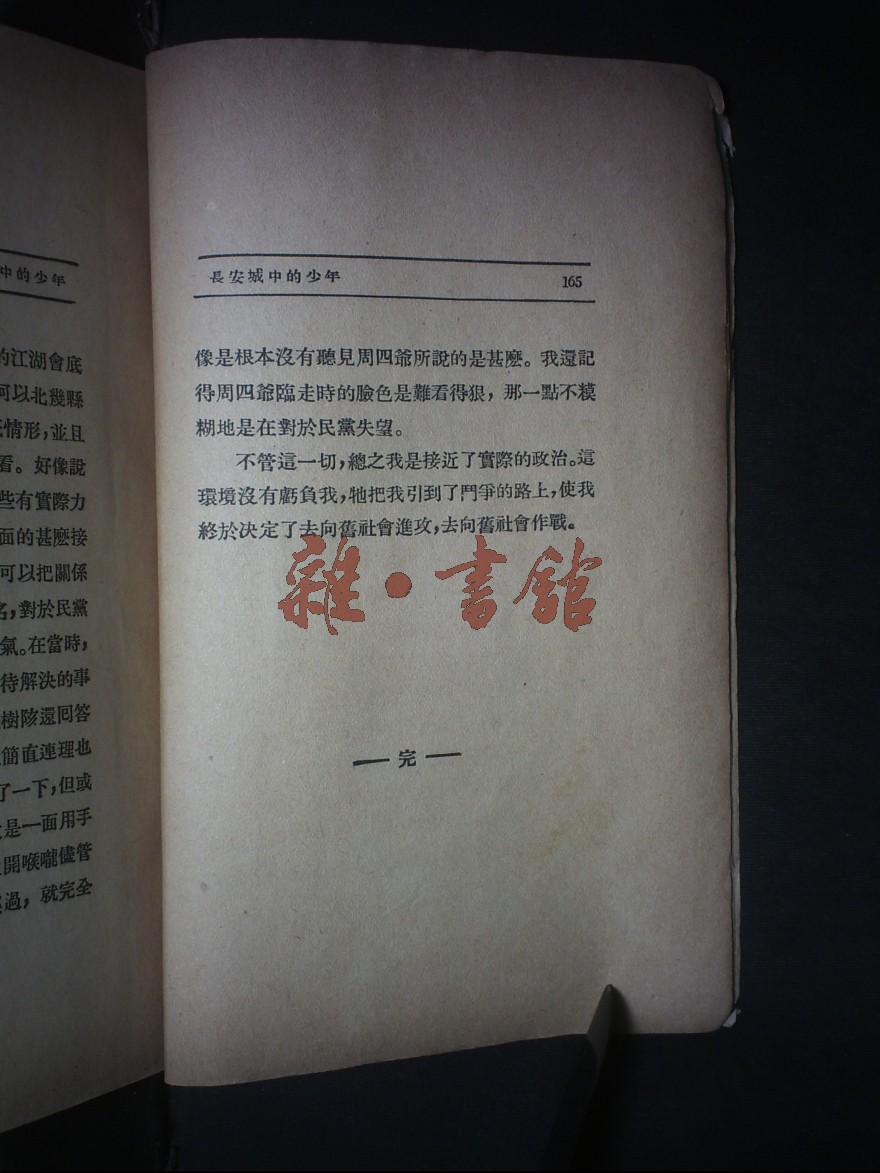 中的少年
的江湖會底
可以北幾縣
情形,並且
看。好像說
些有實際力
面的甚麽接
可以把關係
名,對於民黨
氣。在當時,
待解決的事
樹陔還囘答
簡直連理也
了一下,但或
是一面用手
開喉嚨儘管
過,就完全
長安城中的少年 165
像是根本沒有聽見周四爺所說的是甚麽。我還記
得周四爺臨走時的臉色是難看得狠,那一點不糢
糊地是在對於民黨失望。
不管這一切,總之我是接近了實際的政治。這
環境沒有虧負我,牠把我引到了鬥爭的路上,使我
終於決定了去向舊社會進攻,去向舊社會作戰。
雜·書館
— 完 —